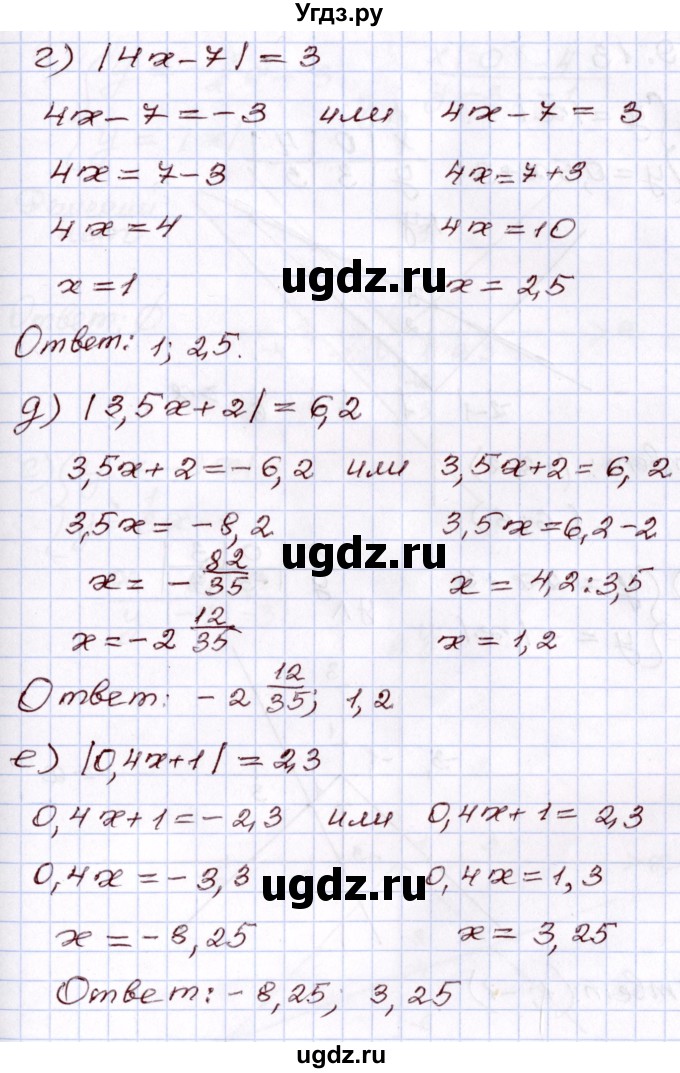 Угдз.ру
г) |4x-7| = 3
4x-7=-3 или 4x-7= 3
4x= 7-3 4x=7+3
4x=4 4x=10
x=1 ugdz.ru x= 2,5
Ответ: 1; 2,5.
д) |3,5x+2|= 6,2
3,5x+2=-6,2 или 3,5x+2= 6,2
3,5x= -8,2 3,5x=6,2-2
ugdz.ru
x= -82/35 x= 4,2:3,5
x=-2 12/35 x= 1,2
Ответ: -2 12/35; 1,2
е) |0,4x+1|=2,3
0,4x+1=-2,3 или 0,4x+1= 2,3
0,4x=-3,3 ugdz.ru 0,4x=1,3
x=-8,25 x= 3,25
Ответ: -8,25; 3,25
ugdz.ru